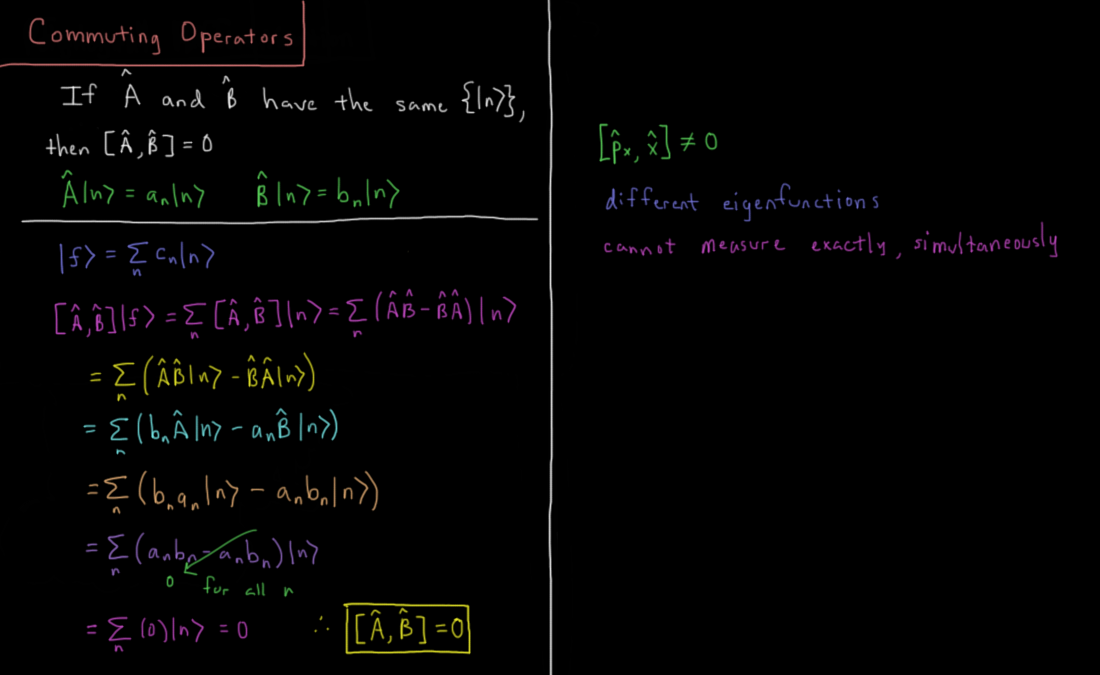 Commuting Operators
If Â and B̂ have the same {|n⟩},
then [Â, B̂] = 0
Â|n⟩ = aₙ|n⟩ B̂|n⟩ = bₙ|n⟩
|f⟩ = Σₙ cₙ|n⟩
[Â, B̂]|f⟩ = Σₙ [Â, B̂]|n⟩ = Σₙ (ÂB̂ - B̂Â)|n⟩
= Σₙ (ÂB̂|n⟩ - B̂Â|n⟩)
= Σₙ (bₙÂ|n⟩ - aₙB̂|n⟩)
= Σₙ (bₙaₙ|n⟩ - aₙbₙ|n⟩)
= Σₙ (aₙbₙ - aₙbₙ)|n⟩
0 for all n
= Σₙ (0)|n⟩ = 0 ∴ [Â, B̂] = 0
[p̂ₓ, x̂] ≠ 0
different eigenfunctions
cannot measure exactly, simultaneously